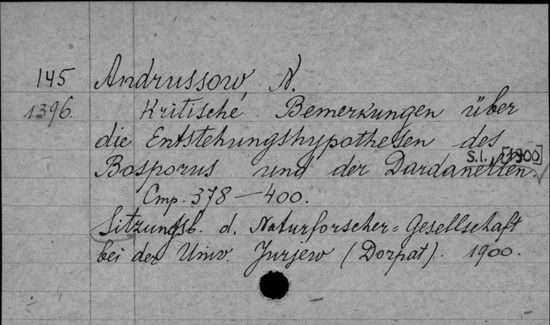 145 Andrussow, N.
1396. Kritische Bemerkungen über
die Entstehungshypothesen des
Bosporus und der Dardanellen.
S.l., [1900]
Стр. 378—400.
Sitzungsb. d. Naturforscher=Gesellschaft
bei der Univ. Jurjew (Dorpat). 1900.